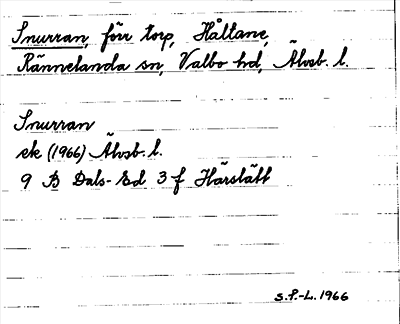 Snurran, förr torp, Håltane,
Rännelanda sn, Valbo hd, Älvsb. l.
Snurran
ek (1966) Älvsb. l.
9 B Dals-Ed 3 f Härslätt
S.F.-L. 1966